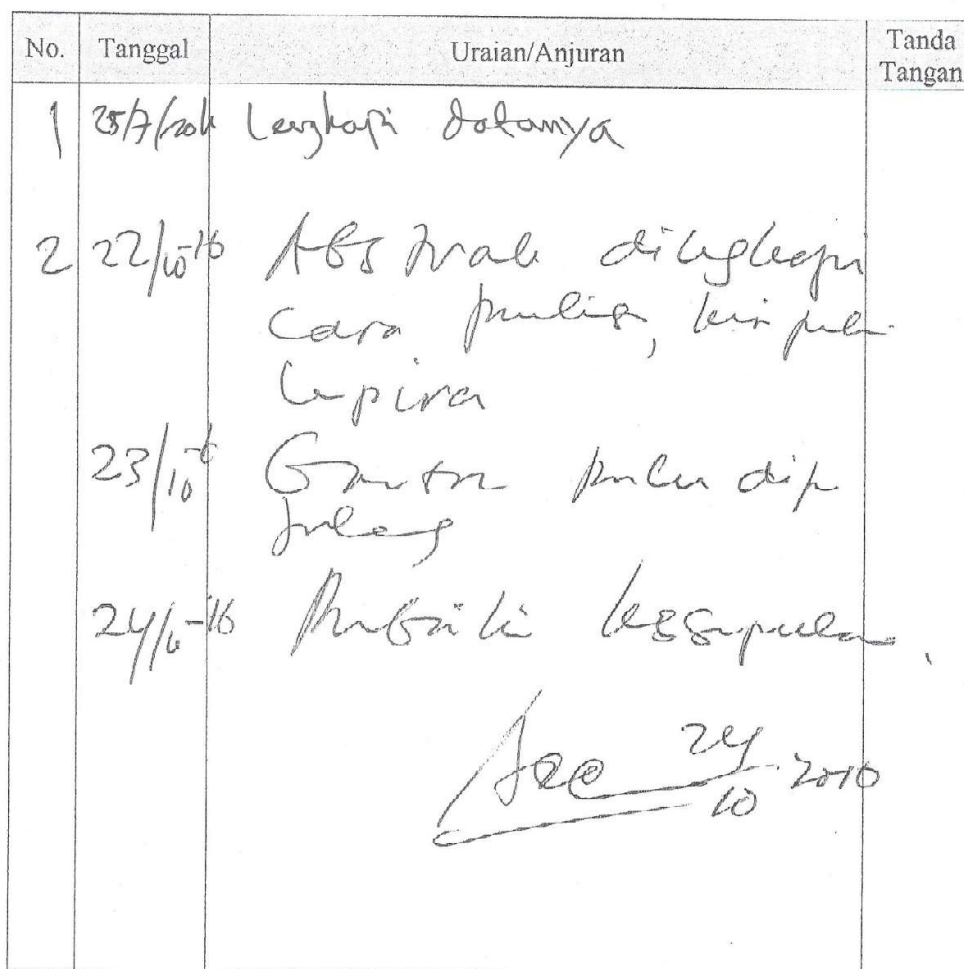 No. Tanggal Uraian/Anjuran Tanda Tangan
1 25/7/2016 Lengkapi datanya
2 22/10-16 Abstrak dilengkapi
cara penulisan,
23/10-16 perlu dip
24/10-16 Perbaiki kesimpulan.
Acc 24/10 2016